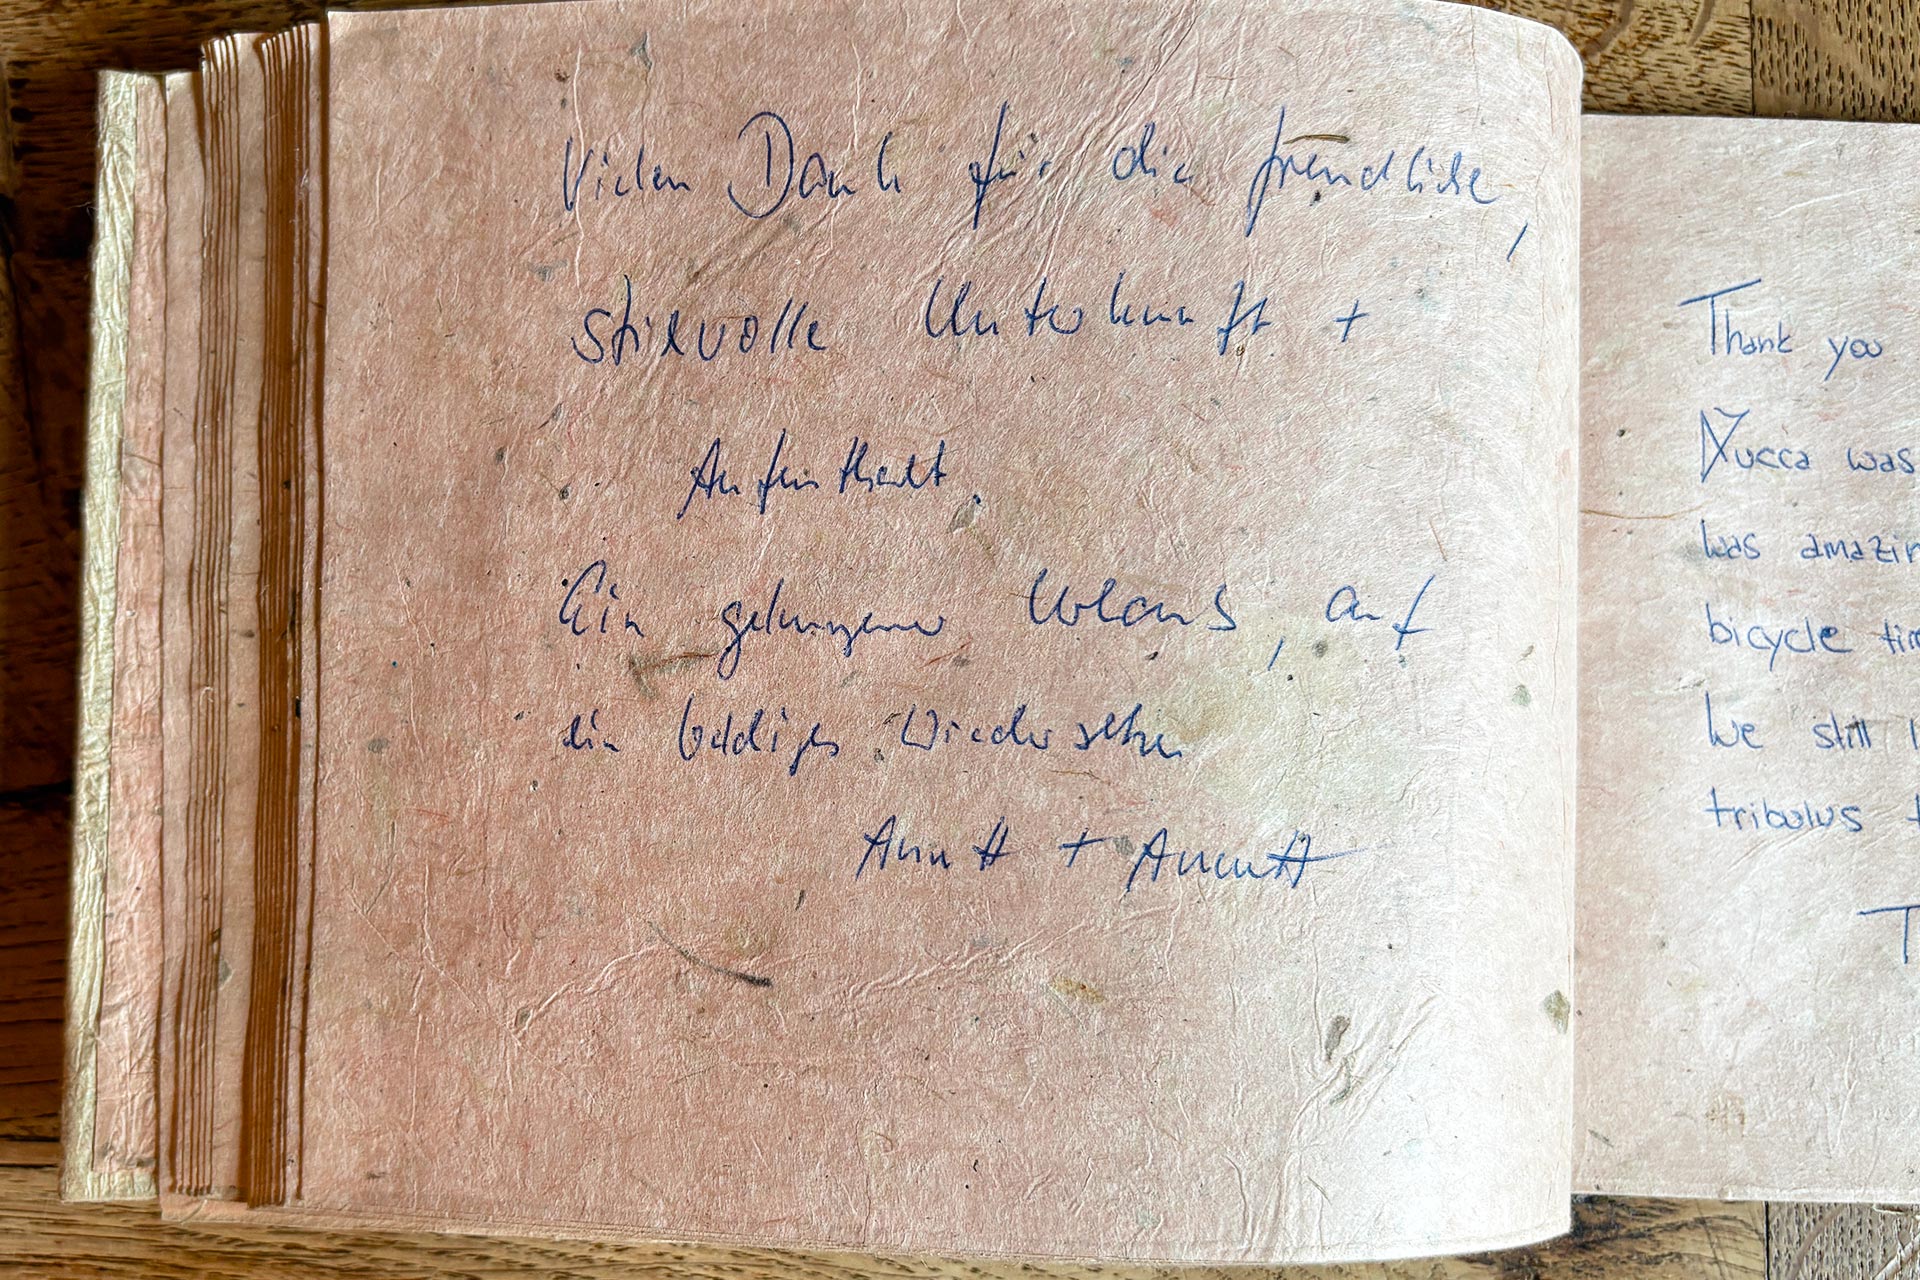 Vielen Dank für die freundliche,
stilvolle Unterkunft +
Aufenthalt.
Ein gelungener Urlaub, auf
ein baldiges Wiedersehen
+
Thank you
Yucca was
was amazin
bicycle tim
We still l
tribulus t
T